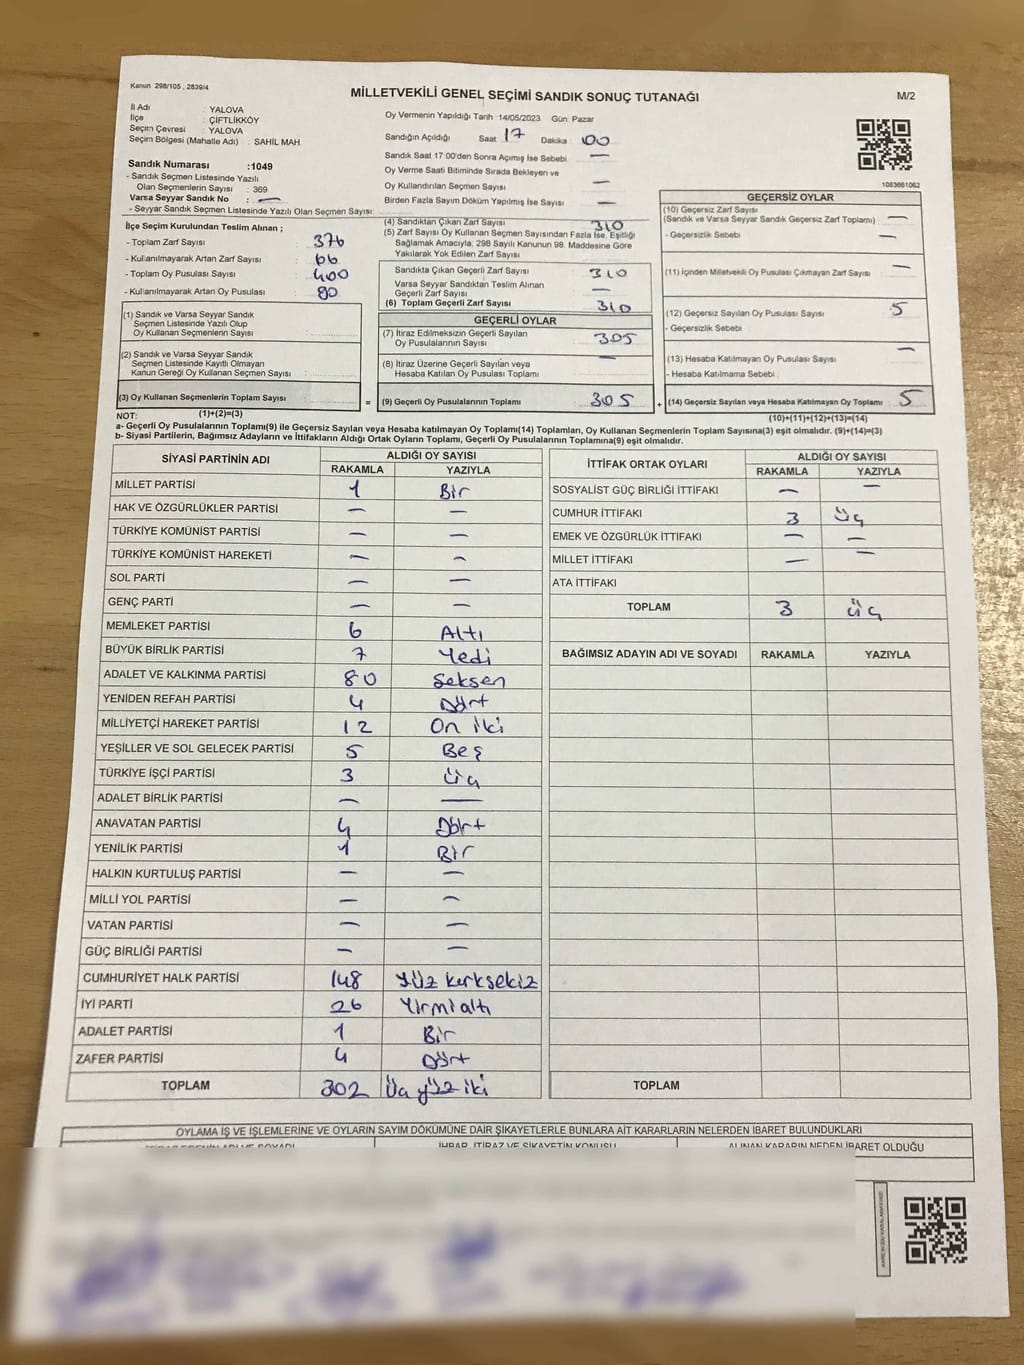 Kanun 298/105 , 2839/4
MİLLETVEKİLİ GENEL SEÇİMİ SANDIK SONUÇ TUTANAĞI
M/2
İl Adı : YALOVA
İlçe : ÇİFTLİKKÖY
Seçim Çevresi : YALOVA
Seçim Bölgesi (Mahalle Adı) : SAHİL MAH.
Sandık Numarası :1049
- Sandık Seçmen Listesinde Yazılı
Olan Seçmenlerin Sayısı : 369
Varsa Seyyar Sandık No : —
- Seyyar Sandık Seçmen Listesinde Yazılı Olan Seçmen Sayısı:
Oy Vermenin Yapıldığı Tarih :14/05/2023 Gün: Pazar
Sandığın Açıldığı Saat 17 Dakika 00
Sandık Saat 17:00'den Sonra Açımış İse Sebebi —
Oy Verme Saati Bitiminde Sırada Bekleyen ve
Oy Kullandırılan Seçmen Sayısı —
Birden Fazla Sayım Döküm Yapılmış İse Sayısı —
1083661062
İlçe Seçim Kurulundan Teslim Alınan ;
- Toplam Zarf Sayısı : 376
- Kullanılmayarak Artan Zarf Sayısı : 66
- Toplam Oy Pusulası Sayısı : 400
- Kullanılmayarak Artan Oy Pusulası : 90
(1) Sandık ve Varsa Seyyar Sandık
Seçmen Listesinde Yazılı Olup
Oy Kullanan Seçmenlerin Sayısı :
(2) Sandık ve Varsa Seyyar Sandık
Seçmen Listesinde Kayıtlı Olmayan
Kanun Gereği Oy Kullanan Seçmen Sayısı :
(3) Oy Kullanan Seçmenlerin Toplam Sayısı :
(1)+(2)=(3)
(4) Sandıktan Çıkan Zarf Sayısı 310
(5) Zarf Sayısı Oy Kullanan Seçmen Sayısından Fazla İse, Eşitliği
Sağlamak Amacıyla; 298 Sayılı Kanunun 98. Maddesine Göre
Yakılarak Yok Edilen Zarf Sayısı
Sandıkta Çıkan Geçerli Zarf Sayısı : 310
Varsa Seyyar Sandıktan Teslim Alınan
Geçerli Zarf Sayısı : —
(6) Toplam Geçerli Zarf Sayısı : 310
GEÇERLİ OYLAR
(7) İtiraz Edilmeksizin Geçerli Sayılan
Oy Pusulalarının Sayısı : 305
(8) İtiraz Üzerine Geçerli Sayılan veya
Hesaba Katılan Oy Pusulası Toplamı : —
= (9) Geçerli Oy Pusulalarının Toplamı : 305
GEÇERSİZ OYLAR
(10) Geçersiz Zarf Sayısı
(Sandık ve Varsa Seyyar Sandık Geçersiz Zarf Toplamı) : —
- Geçersizlik Sebebi : —
(11) İçinden Milletvekili Oy Pusulası Çıkmayan Zarf Sayısı : —
(12) Geçersiz Sayılan Oy Pusulası Sayısı : 5
- Geçersizlik Sebebi :
(13) Hesaba Katılmayan Oy Pusulası Sayısı : —
- Hesaba Katılmama Sebebi :
+ (14) Geçersiz Sayılan veya Hesaba Katılmayan Oy Toplamı : 5
(10)+(11)+(12)+(13)=(14)
NOT:
a- Geçerli Oy Pusulalarının Toplamı(9) ile Geçersiz Sayılan veya Hesaba katılmayan Oy Toplamı(14) Toplamları, Oy Kullanan Seçmenlerin Toplam Sayısına(3) eşit olmalıdır. (9)+(14)=(3)
b- Siyasi Partilerin, Bağımsız Adayların ve İttifakların Aldığı Ortak Oyların Toplamı, Geçerli Oy Pusulalarının Toplamına(9) eşit olmalıdır.
SİYASİ PARTİNİN ADI ALDIĞI OY SAYISI
RAKAMLA YAZIYLA
MİLLET PARTİSİ 1 Bir
HAK VE ÖZGÜRLÜKLER PARTİSİ — —
TÜRKİYE KOMÜNİST PARTİSİ — —
TÜRKİYE KOMÜNİST HAREKETİ — —
SOL PARTİ — —
GENÇ PARTİ — —
MEMLEKET PARTİSİ 6 Altı
BÜYÜK BİRLİK PARTİSİ 7 Yedi
ADALET VE KALKINMA PARTİSİ 80 Seksen
YENİDEN REFAH PARTİSİ 4 Dört
MİLLİYETÇİ HAREKET PARTİSİ 12 On iki
YEŞİLLER VE SOL GELECEK PARTİSİ 5 Beş
TÜRKİYE İŞÇİ PARTİSİ 3 Üç
ADALET BİRLİK PARTİSİ — —
ANAVATAN PARTİSİ 4 Dört
YENİLİK PARTİSİ 1 Bir
HALKIN KURTULUŞ PARTİSİ — —
MİLLİ YOL PARTİSİ — —
VATAN PARTİSİ — —
GÜÇ BİRLİĞİ PARTİSİ — —
CUMHURİYET HALK PARTİSİ 148 Yüz kırksekiz
İYİ PARTİ 26 Yirmialtı
ADALET PARTİSİ 1 Bir
ZAFER PARTİSİ 4 Dört
TOPLAM 302 Üç yüz iki
İTTİFAK ORTAK OYLARI ALDIĞI OY SAYISI
RAKAMLA YAZIYLA
SOSYALİST GÜÇ BİRLİĞİ İTTİFAKI — —
CUMHUR İTTİFAKI 3 Üç
EMEK VE ÖZGÜRLÜK İTTİFAKI — —
MİLLET İTTİFAKI — —
ATA İTTİFAKI
TOPLAM 3 üç
BAĞIMSIZ ADAYIN ADI VE SOYADI RAKAMLA YAZIYLA
TOPLAM
OYLAMA İŞ VE İŞLEMLERİNE VE OYLARIN SAYIM DÖKÜMÜNE DAİR ŞİKAYETLERLE BUNLARA AİT KARARLARIN NELERDEN İBARET BULUNDUKLARI
İHBAR, İTİRAZ VE ŞİKAYETİN KONUSU ALINAN KARARIN NEDEN İBARET OLDUĞU